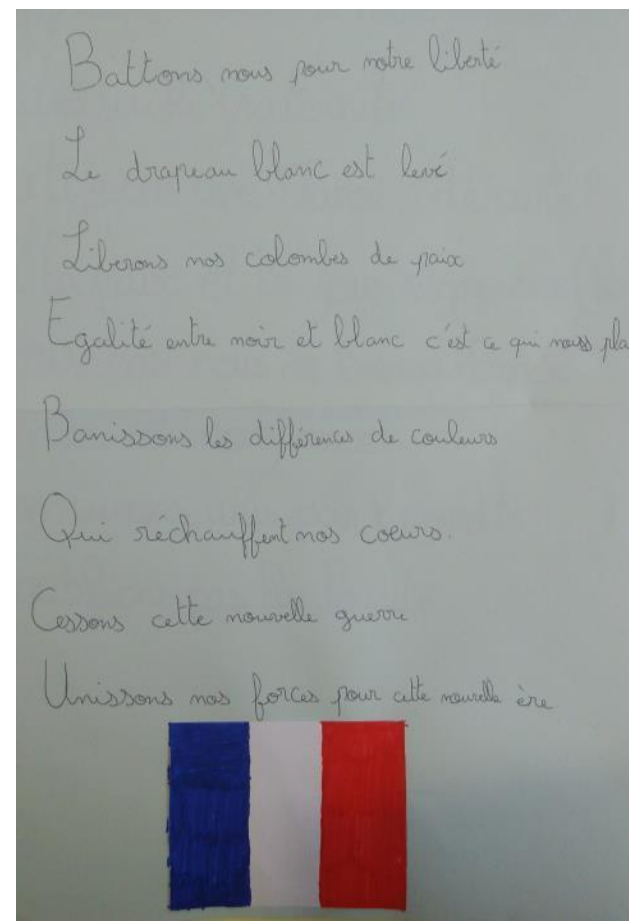 Battons nous pour notre liberté
Le drapeau blanc est levé
Liberons nos colombes de paix
Egalité entre noir et blanc c'est ce qui nous pla
Banissons les différences de couleurs
Qui réchauffent nos coeurs.
Cessons cette nouvelle guerre
Unissons nos forces pour cette nouvelle ère